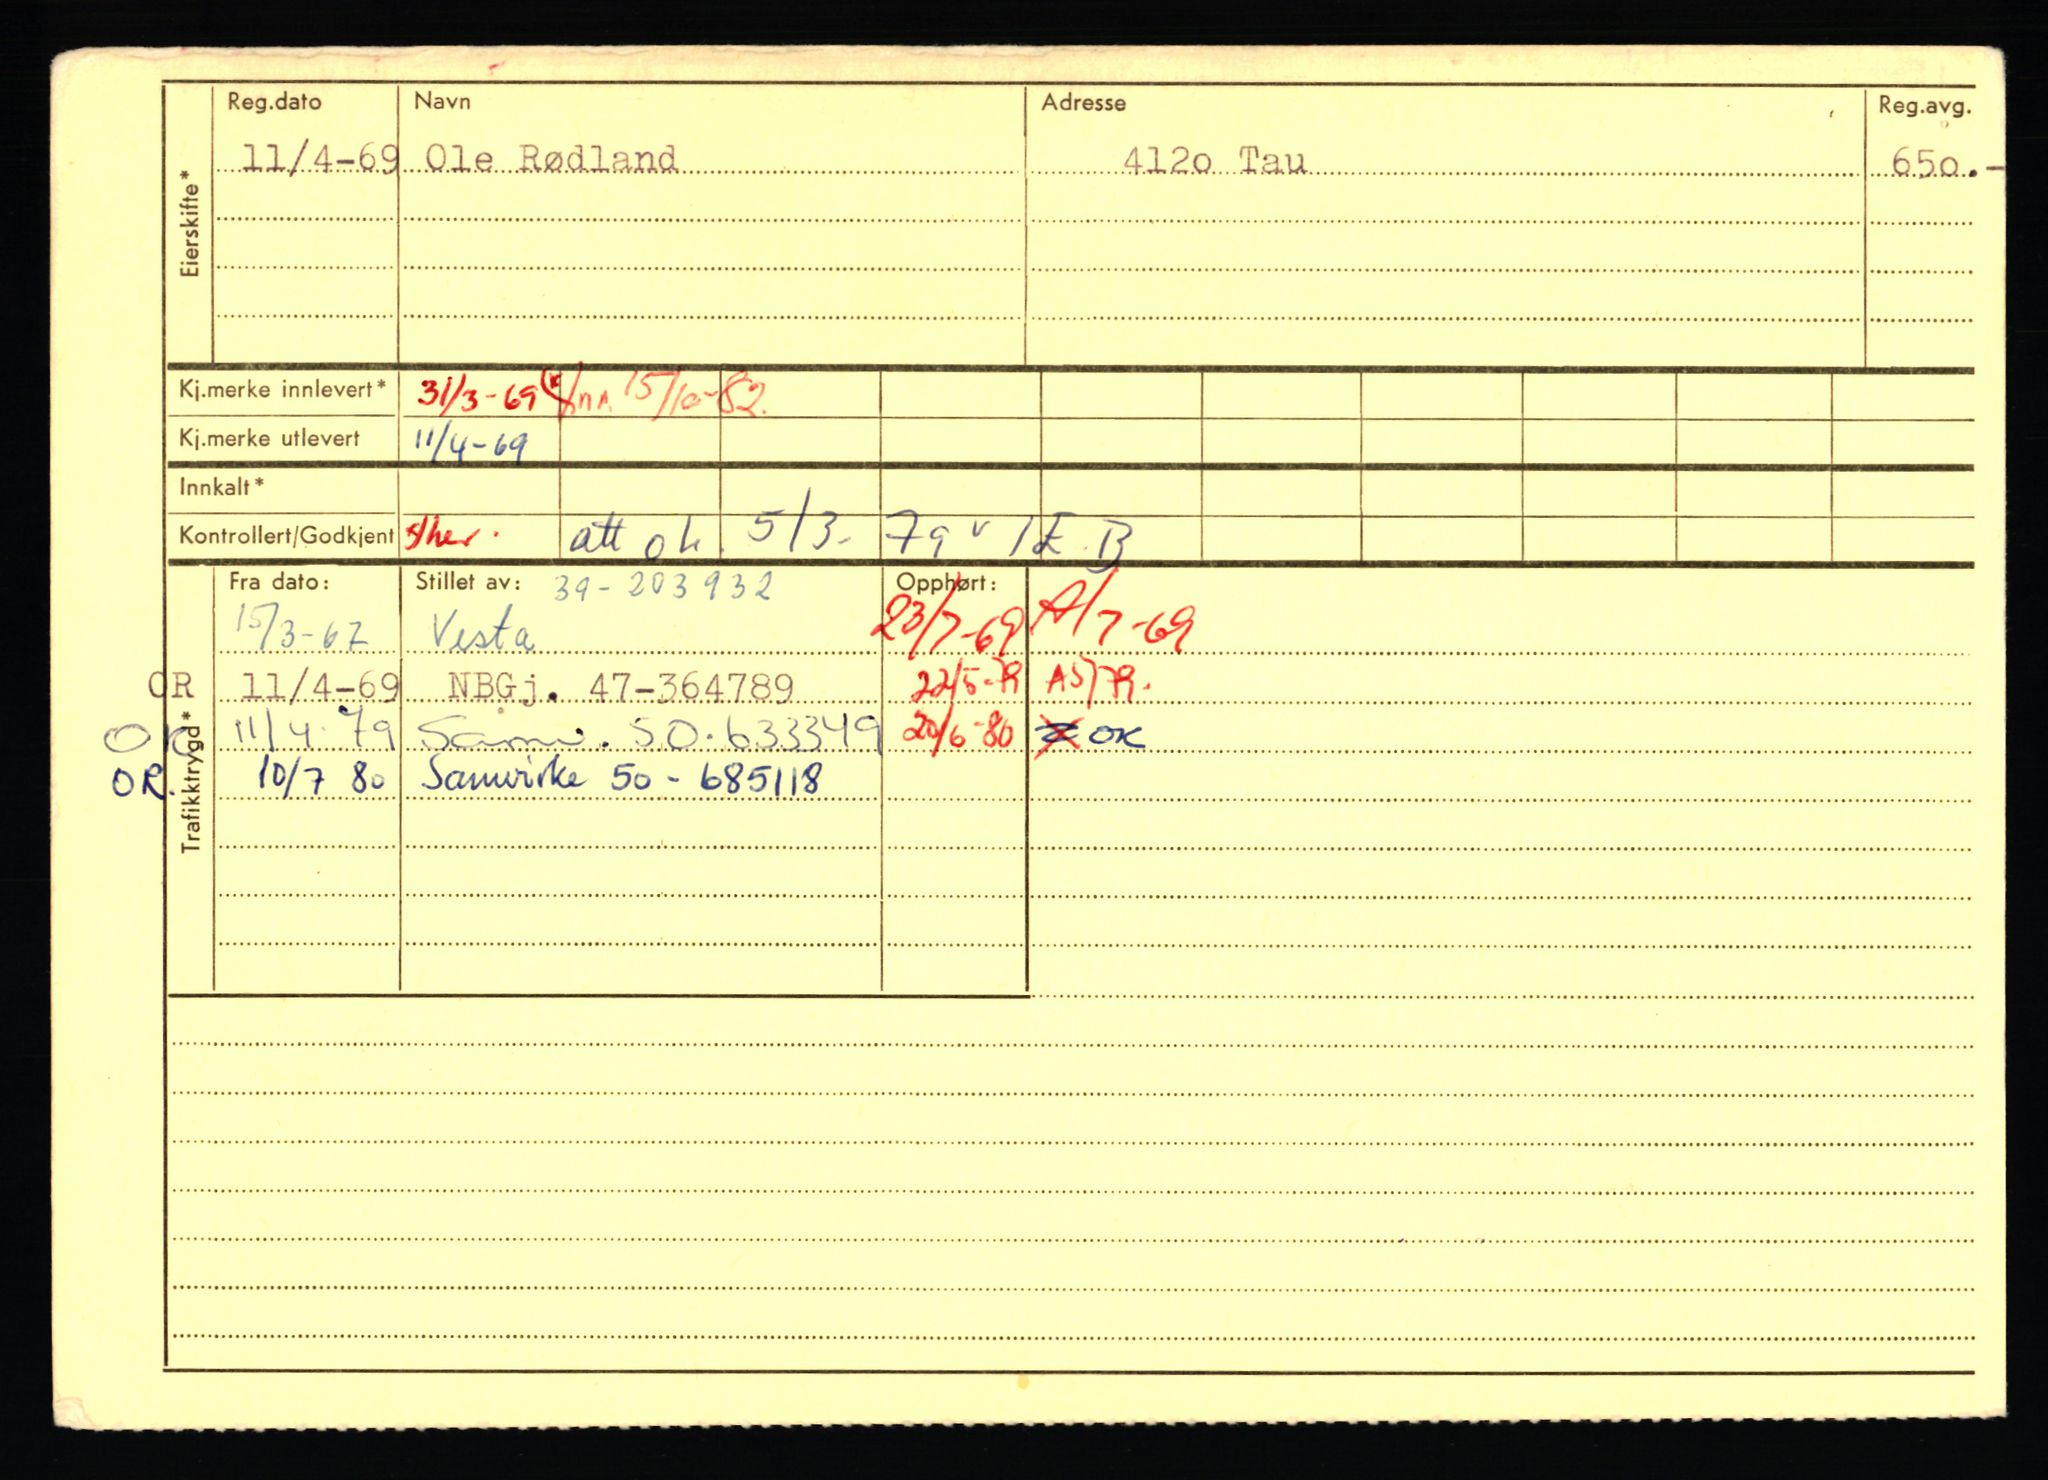 Reg.dato Navn Adresse Reg.avg.
Eierskifte*
11/4-69 Ole Rødland 412o Tau 65o.-
Kj.merke innlevert* 31/3-69 Inn. 15/10-82.
Kj.merke utlevert 11/4-69
Innkalt*
Kontrollert/Godkjent att ok. 5/3- 79
Trafikktrygd*
Fra dato: Stillet av: 39-203932 Opphørt:
15/3-67 Vesta 23/7-69 A/7-69
OR 11/4-69 NBGj. 47-364789 22/5-79 A5/79.
OK 11/4-79 Samv. 50.633349 20/6-80 OK
OR. 10/7 80 Samvirke 50-685118